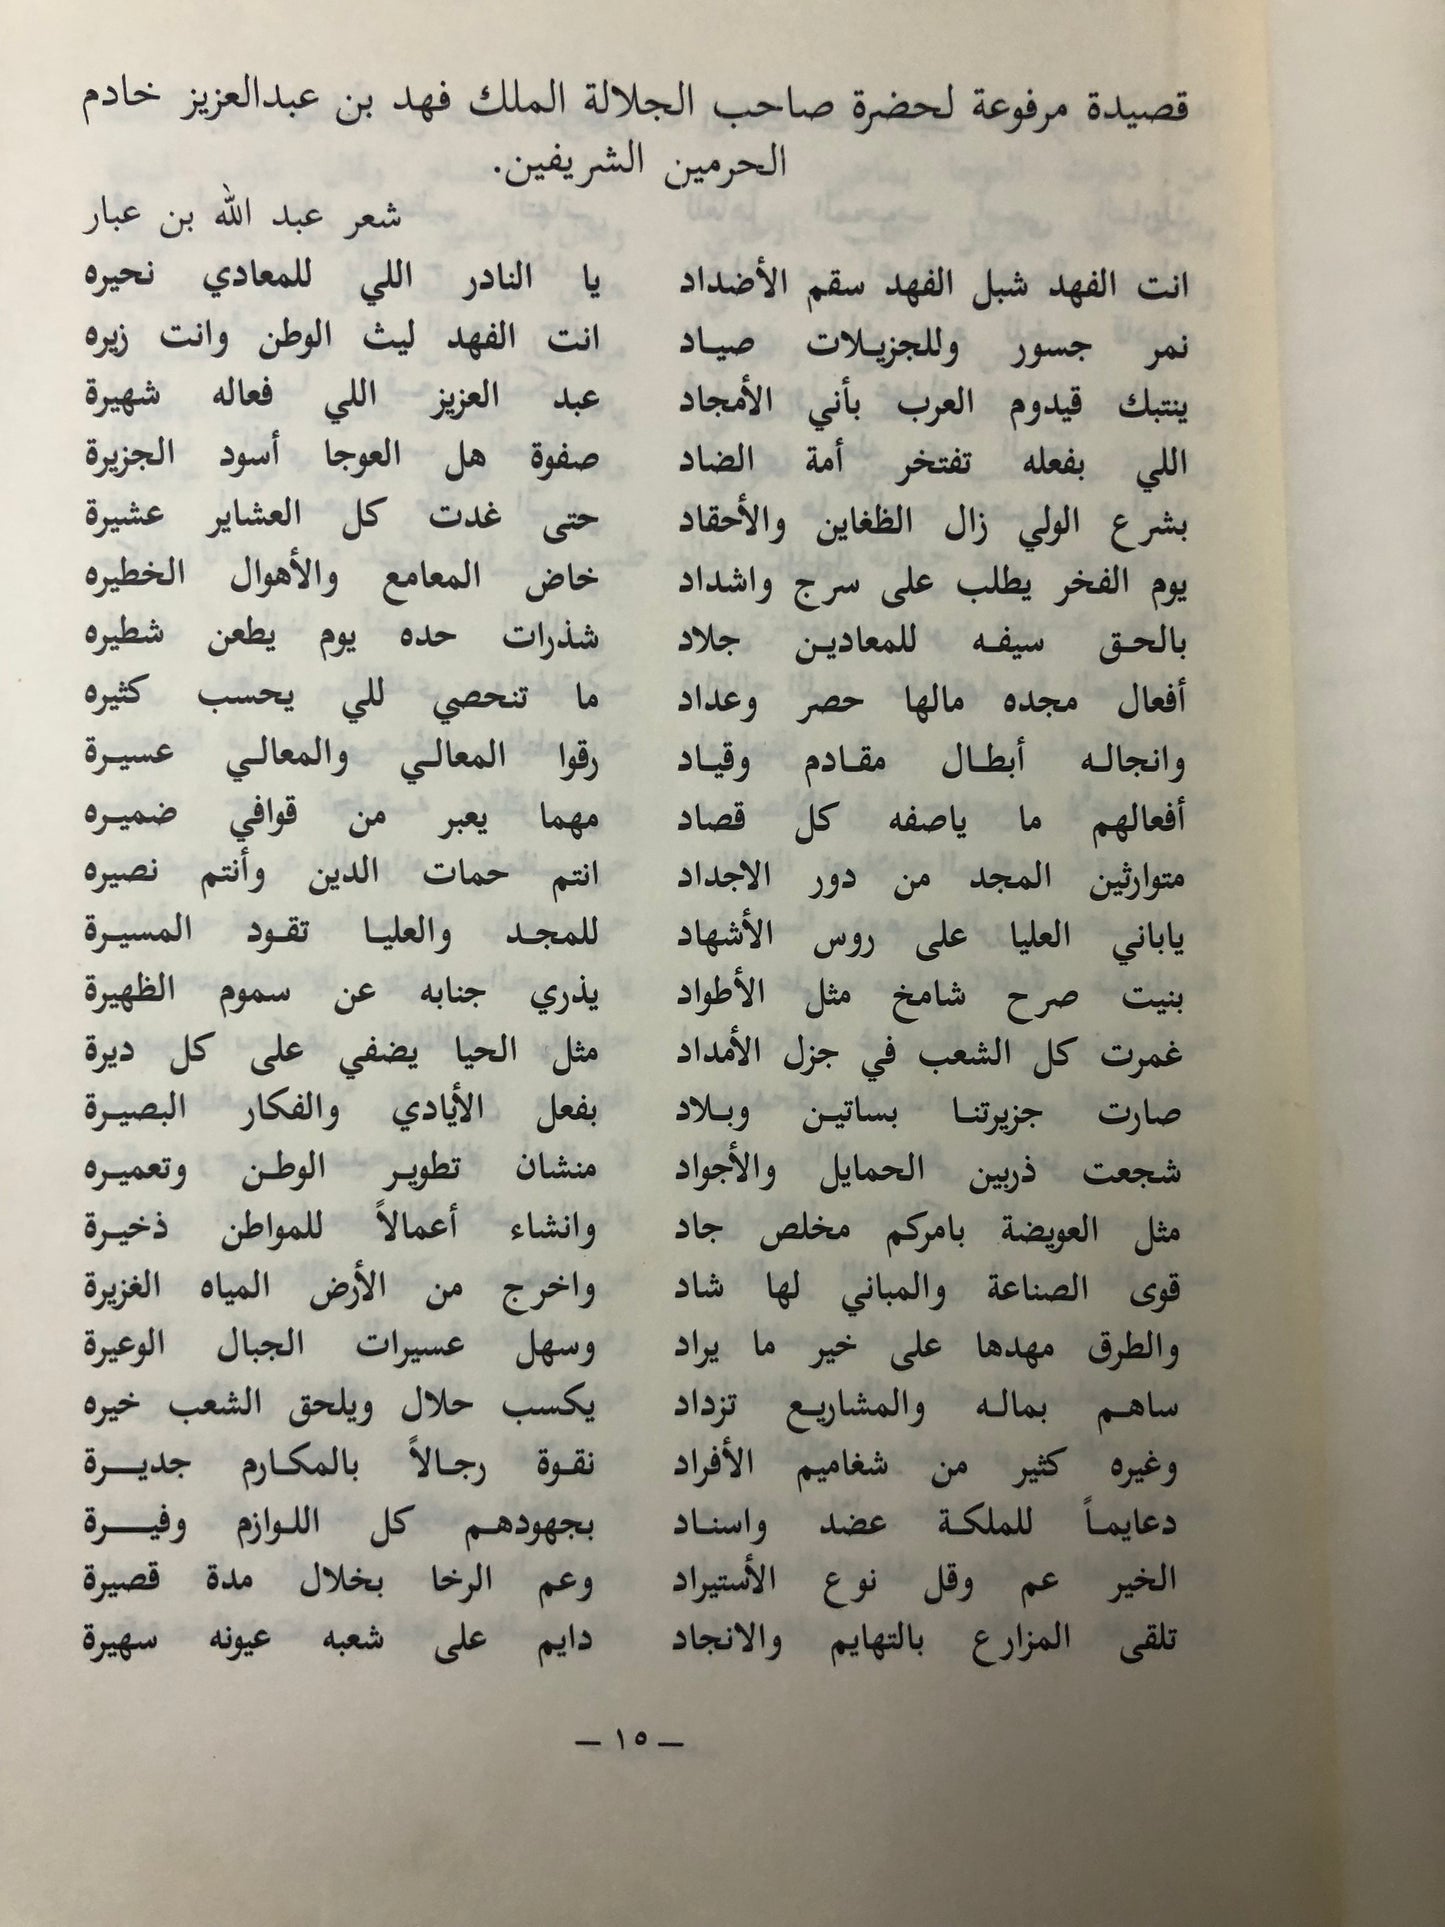 قصيدة مرفوعة لحضرة صاحب الجلالة الملك فهد بن عبدالعزيز خادم
الحرمين الشريفين.
شعر عبد الله بن عبار
انت الفهد شبل الفهد سقم الأضداد يا النادر اللي للمعادي نحيره
نمر جسور وللجزيلات صياد انت الفهد ليث الوطن وانت زيره
ينتبك قيدوم العرب بأني الأمجاد عبد العزيز اللي فعاله شهيرة
اللي بفعله تفتخر أمة الضاد صفوة هل العوجا أسود الجزيرة
بشرع الولي زال الظغاين والأحقاد حتى غدت كل العشاير عشيرة
يوم الفخر يطلب على سرج واشداد خاض المعامع والأهوال الخطيره
بالحق سيفه للمعادين جلاد شذرات حده يوم يطعن شطيره
أفعال مجده مالها حصر وعداد ما تنحصي للي يحسب كثيره
وانجاله أبطال مقادم وقياد رقوا المعالي والمعالي عسيرة
أفعالهم ما ياصفه كل قصاد مهما يعبر من قوافي ضميره
متوارثين المجد من دور الاجداد انتم حمات الدين وأنتم نصيره
ياباني العليا على روس الأشهاد للمجد والعليا تقود المسيرة
بنيت صرح شامخ مثل الأطواد يذري جنابه عن سموم الظهيرة
غمرت كل الشعب في جزل الأمداد مثل الحيا يضفي على كل ديرة
صارت جزيرتنا بساتين وبلاد بفعل الأيادي والفكار البصيرة
شجعت ذربين الحمايل والأجواد منشان تطوير الوطن وتعميره
مثل العويضة بامركم مخلص جاد وانشاء أعمالاً للمواطن ذخيرة
قوى الصناعة والمباني لها شاد واخرج من الأرض المياه الغزيرة
والطرق مهدها على خير ما يراد وسهل عسيرات الجبال الوعيرة
ساهم بماله والمشاريع تزداد يكسب حلال ويلحق الشعب خيره
وغيره كثير من شغاميم الأفراد نقوة رجالاً بالمكارم جديرة
دعايماً للملكة عضد واسناد بجهودهم كل اللوازم وفيرة
الخير عم وقل نوع الأستيراد وعم الرخا بخلال مدة قصيرة
تلقى المزارع بالتهايم والانجاد دايم على شعبه عيونه سهيرة
— ١٥ —